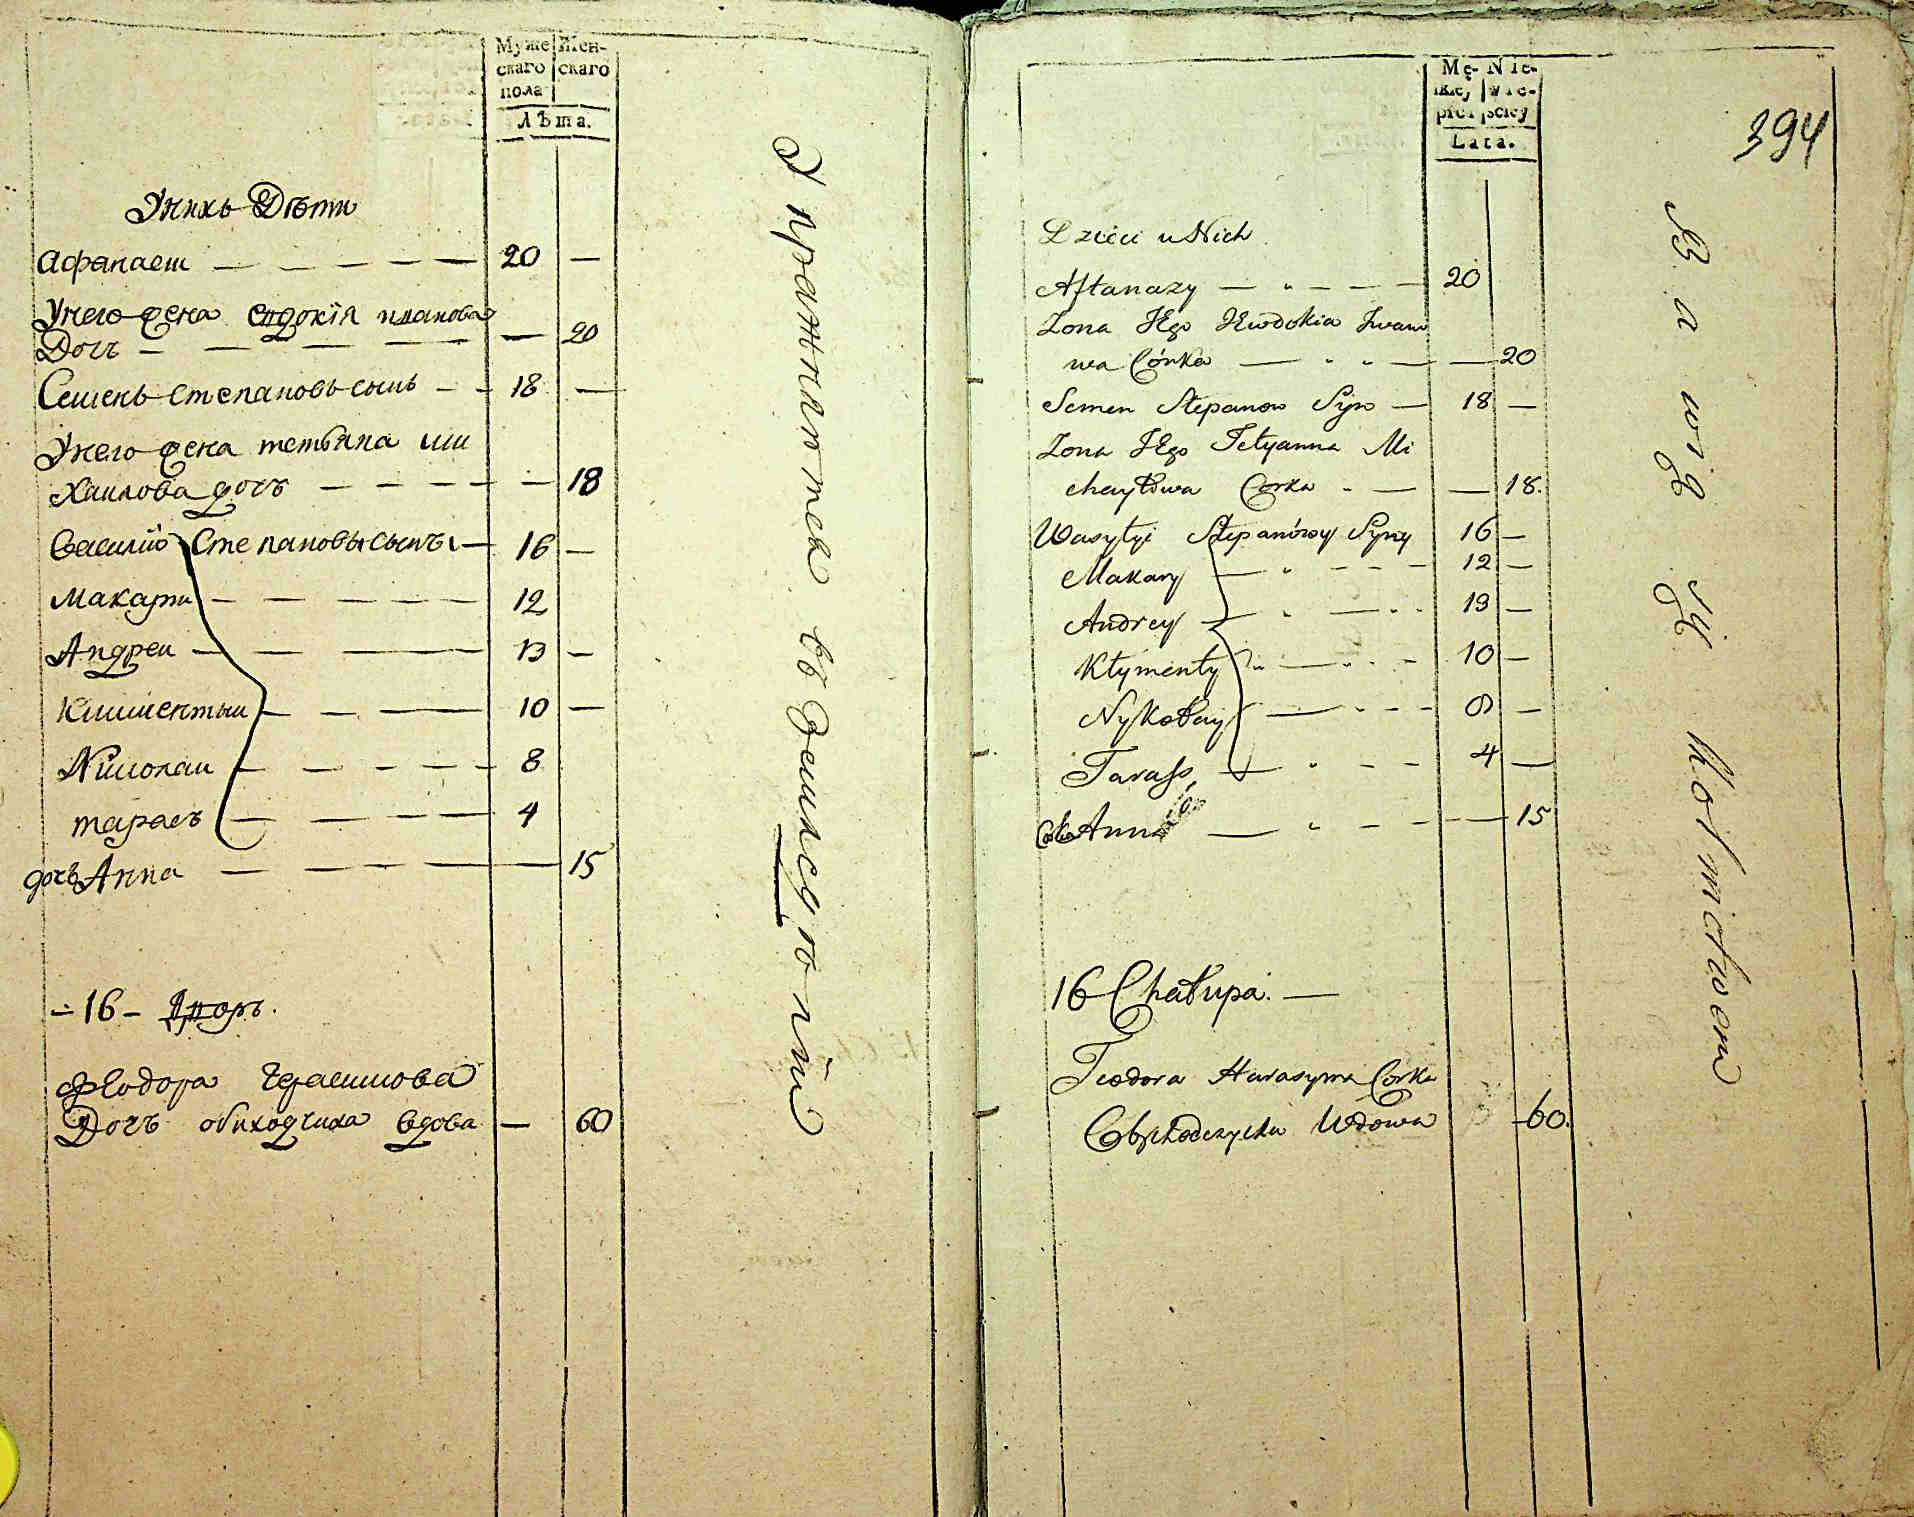 Муже Жен-
скаго скаго
пола
Лѣта.
Унихъ Дѣти
Афанаеи 20 —
Унего жена евдокія иванова
Дочъ — 20
Семенъ степановъ сынъ 18 —
Унего жена тетьяна ми
хаилова дочъ — 18
василий Степановы сынъı 16 —
Макари 12
Андреи 13 —
Климентыи 10 —
Николаи 8
тарасъ 4
дочъ Анна — 15
16 Дворъ.
феодора герасимова
Дочъ обиходчиха вдова — 60
Mę- Nie-
skiej wie-
płci sciey
Lata.
394
Dzieci u Nich
Aftanazy 20
Zona JEgo JEwdokia Jwano
wa Córka — 20
Semen Stepanow Syn 18 —
Zona JEgo Tetyanna Mi
chayłowa Corka — 18.
Wasylyi Stepanówy Syny 16 —
Makary 12 —
Andrey 13 —
Kłymenty 10 —
Nykołay 8 —
Tarass 4 —
Corka Anna — 15
16 Chałupa. —
Teodora Harasyma Corka
Obychodczycha Wdowa 60.